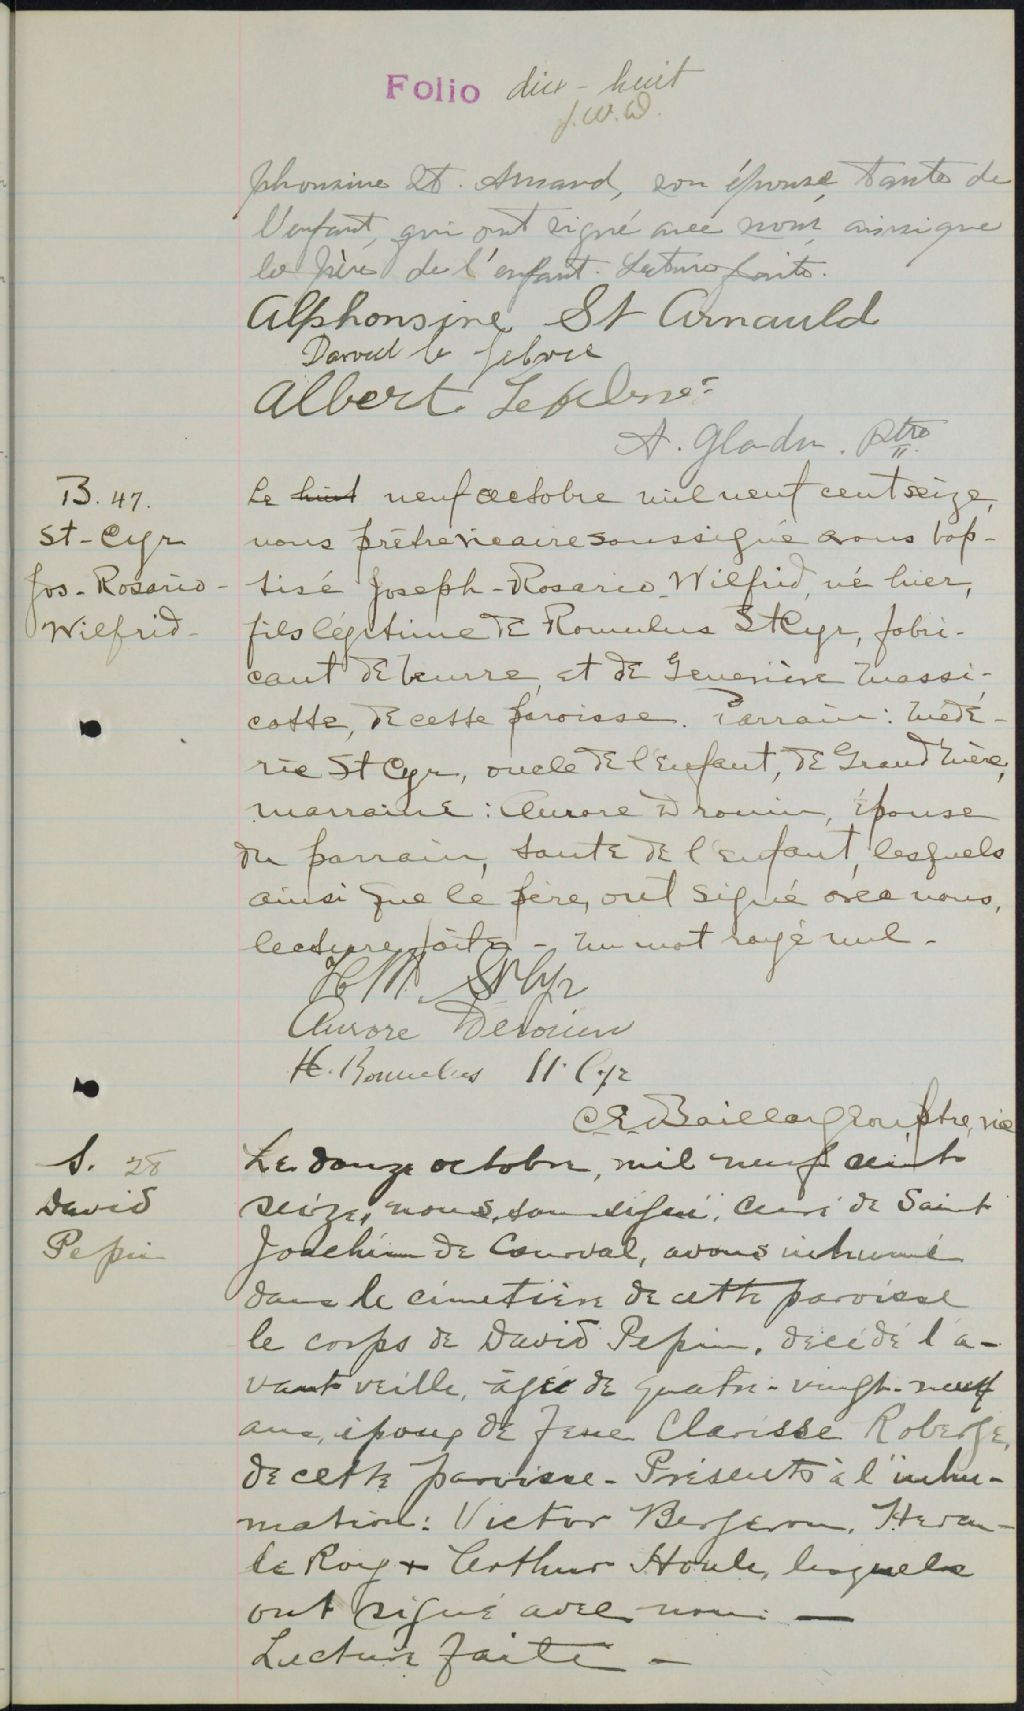 Folio dix-huit
J.W.D.
phonsine St. Arnaud, son épouse, tante de
l'enfant, qui ont signé avec nous, ainsi que
le père de l'enfant. Lecture faite.
Alphonsine St Arnauld
David le febvre
Albert Lefebvre
A. Gladu. Ptre
B. 47.
St-Cyr
Jos-Rosario-
Wilfrid-
Le huit neuf octobre mil neuf cent seize,
nous prêtre vicaire soussigné avons bap-
tisé Joseph-Rosario-Wilfrid, né hier,
fils légitime de Romulus St Cyr, fabri-
cant de beurre, et de Geneviève Massi-
cotte, de cette paroisse. Parrain: Médé-
ric St Cyr, oncle de l'enfant, de Grand'Mère,
marraine: Aurore Drouin, épouse
du parrain, tante de l'enfant, lesquels
ainsi que le père, ont signé avec nous,
lecture faite - Un mot rayé nul -
H M St Cyr
Aurore Derouin
H. Romulus St. Cyr
C.E. Baillargeon, ptre, vic
S. 28
David
Pepin
Le douze octobre, mil neuf cent
seize, nous, soussigné, curé de Saint
Joachim de Courval, avons inhumé
dans le cimetière de cette paroisse
le corps de David Pepin, décédé l'a-
vant veille, âgé de quatre-vingt-neuf
ans, époux de feue Clarisse Roberge,
de cette paroisse - Présents à l'inhu-
mation: Victor Bergeron,
le Roy & Arthur Houle, lesquels
ont signé avec nous —
Lecture faite -